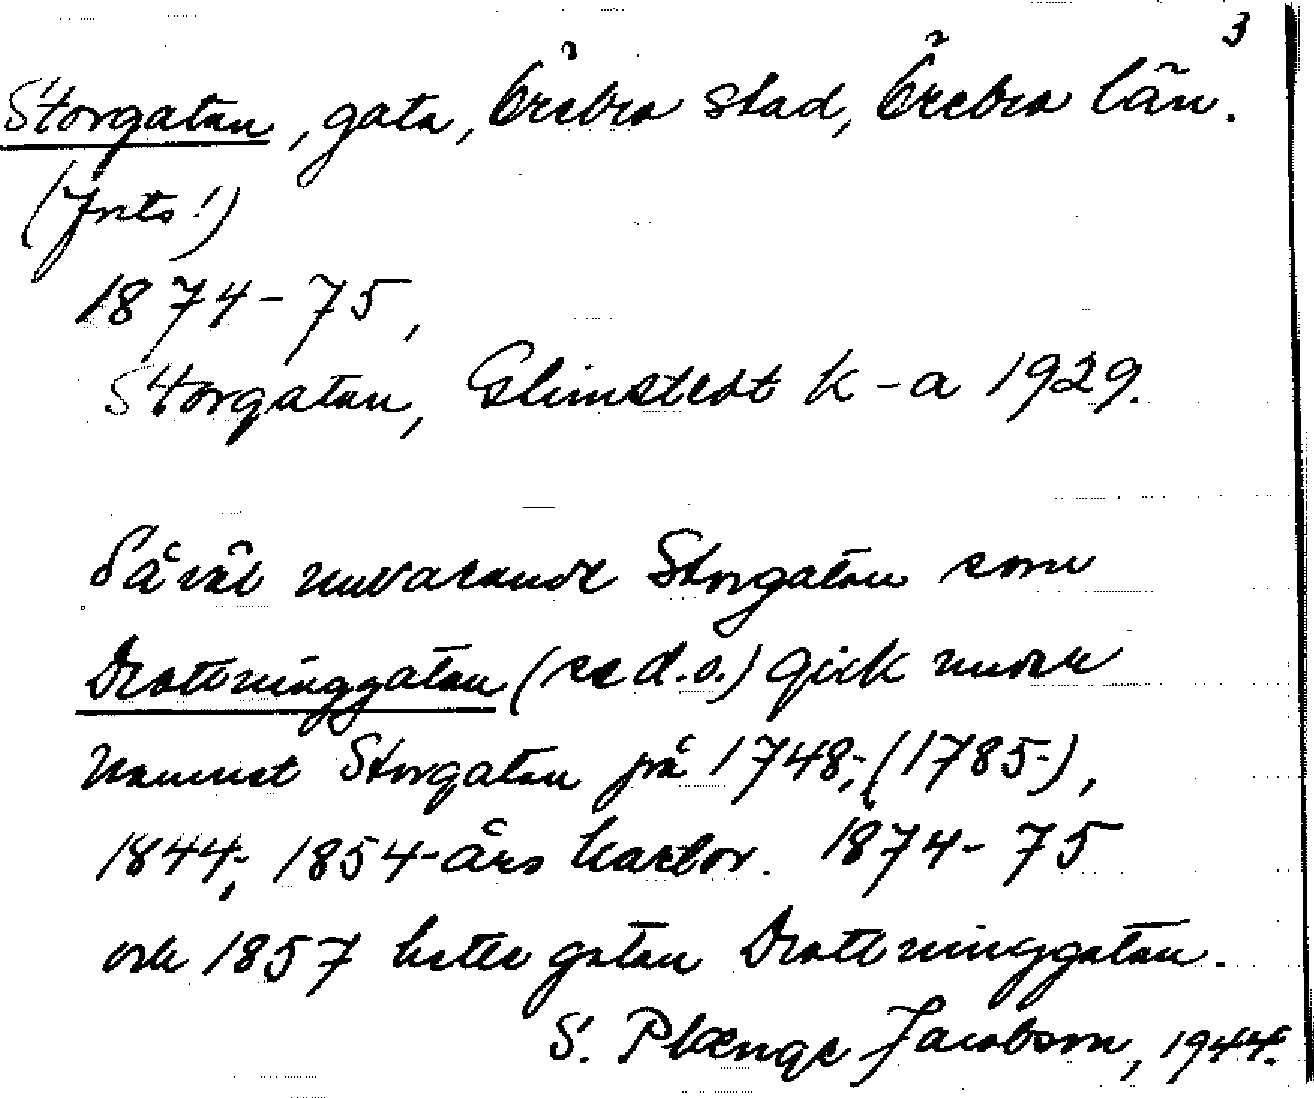 3
Storgatan, gata, Örebro stad, Örebro län.
(forts.)
1874-75,
Storgatan, Glimstedt k-a 1929.
Såväl nuvarande Storgatan som
Drottninggatan (se d.o.) gick under
namnet Storgatan på 1748-, (1785-),
1844-, 1854-års kartor. 1874-75
och 1857 heter gatan Drottninggatan.
S. Plænge Jacobson, 1944.